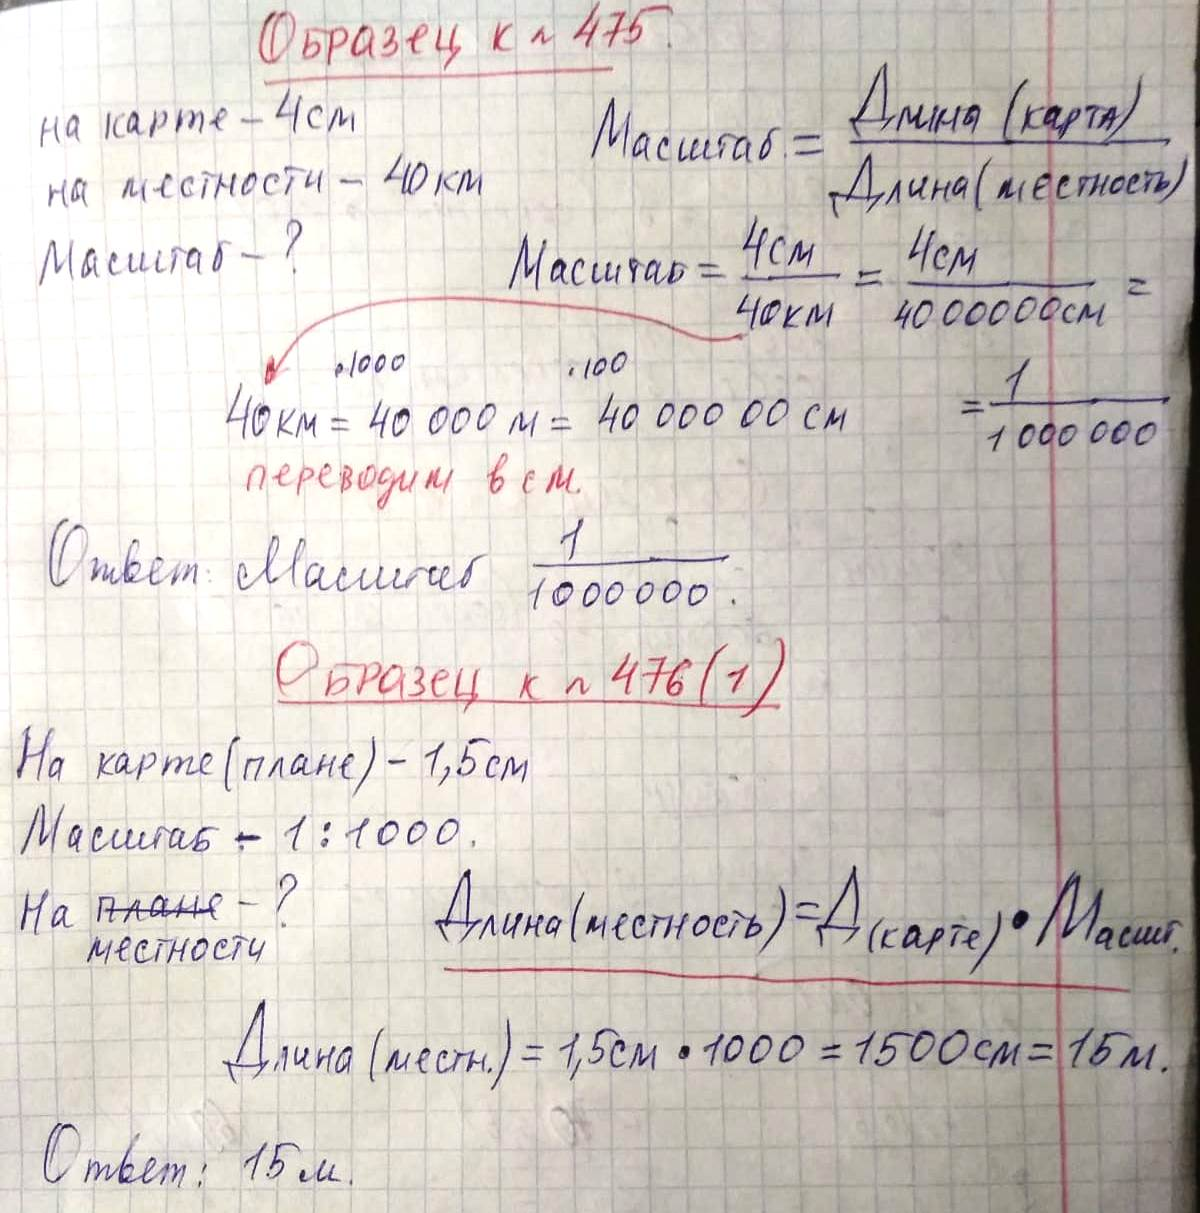 Образец к № 475.
на карте - 4см
на местности - 40 км
Масштаб - ?
Масштаб = Длина (карта) / Длина (местность)
Масштаб = 4см / 40км = 4см / 4000000см =
= 1 / 1 000 000
·1000 ·100
40км = 40 000 м = 40 000 00 см
переводим в см.
Ответ: Масштаб 1 / 1000000.
Образец к № 476 (1)
На карте (плане) - 1,5см
Масштаб - 1 : 1000.
На плане - ?
местности
Длина (местность) = Д (карте) · Масшт.
Длина (местн.) = 1,5см · 1000 = 1500см = 15м.
Ответ: 15 м.